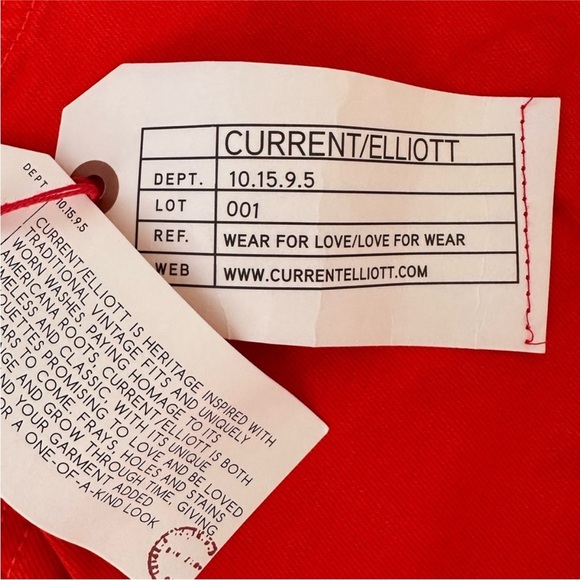 CURRENT/ELLIOTT
DEPT. 10.15.9.5
LOT 001
REF. WEAR FOR LOVE/LOVE FOR WEAR
WEB WWW.CURRENTELLIOTT.COM
DEPT 10.15.9.5
CURRENT/ELLIOTT IS HERITAGE INSPIRED WITH
TRADITIONAL VINTAGE FITS AND UNIQUELY
WORN WASHES, PAYING HOMAGE TO ITS
AMERICANA ROOTS. CURRENT/ELLIOTT IS BOTH
MELESS AND CLASSIC, WITH ITS UNIQUE
UETTES PROMISING TO LOVE AND BE LOVED
ARS TO COME. FRAYS, HOLES AND STAINS
GE AND GROW THROUGH TIME, GIVING
ND YOUR GARMENT ADDED
OR A ONE-OF-A-KIND LOOK